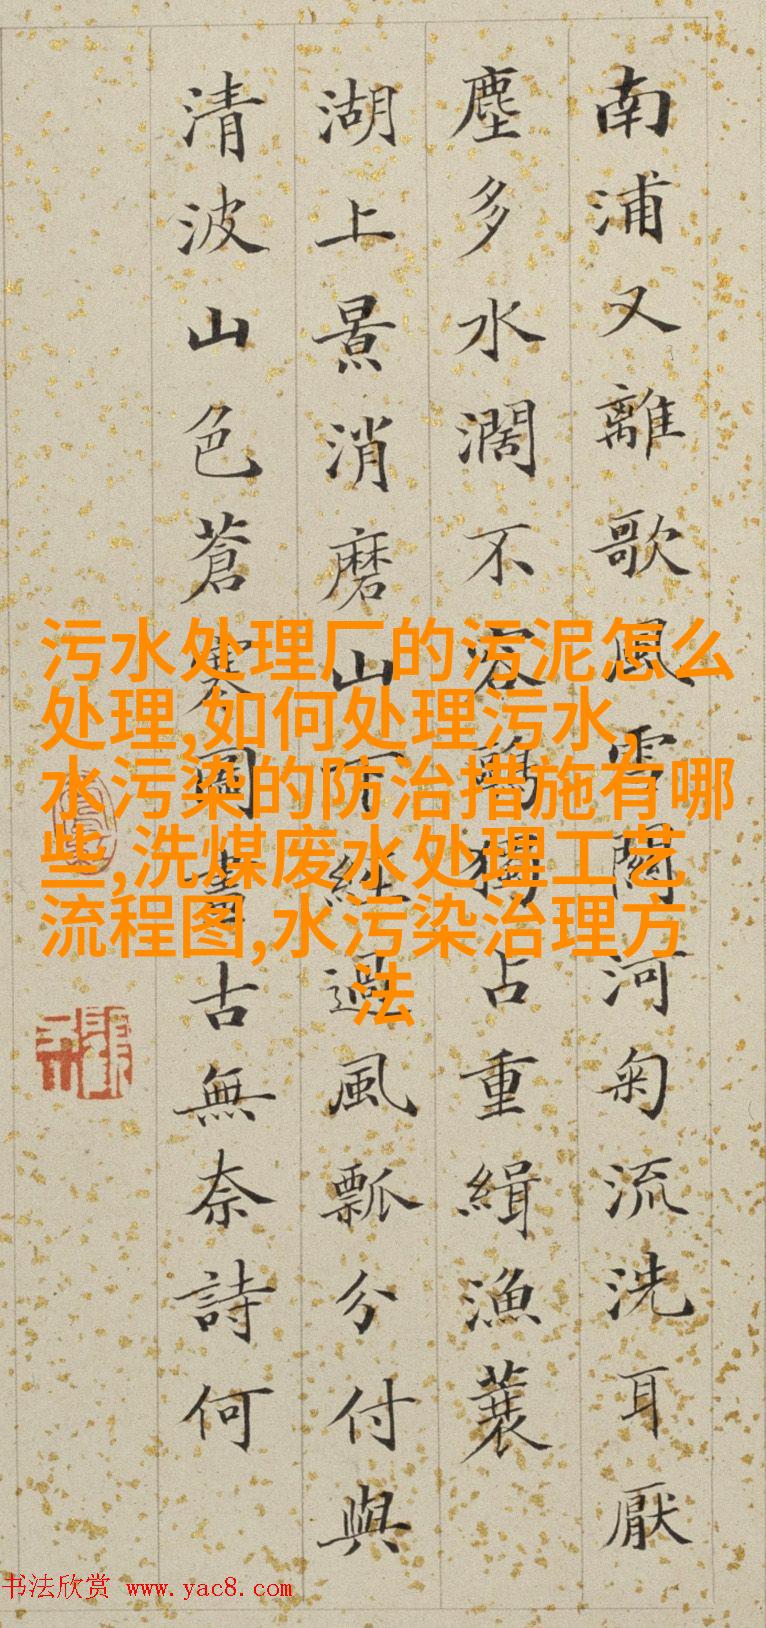 南浦又離歌風雪關河匊流洗耳厭
塵多水濶不容鷗獨占重緝漁蓑
湖上景消磨山下經過風瓢分付與
清波山色蒼寒圖畫古無奈詩何
污水处理厂的污泥怎么
处理,如何处理污水,
水污染的防治措施有哪
些,洗煤废水处理工艺
流程图,水污染治理方
法
书法欣赏 www.yac8.com